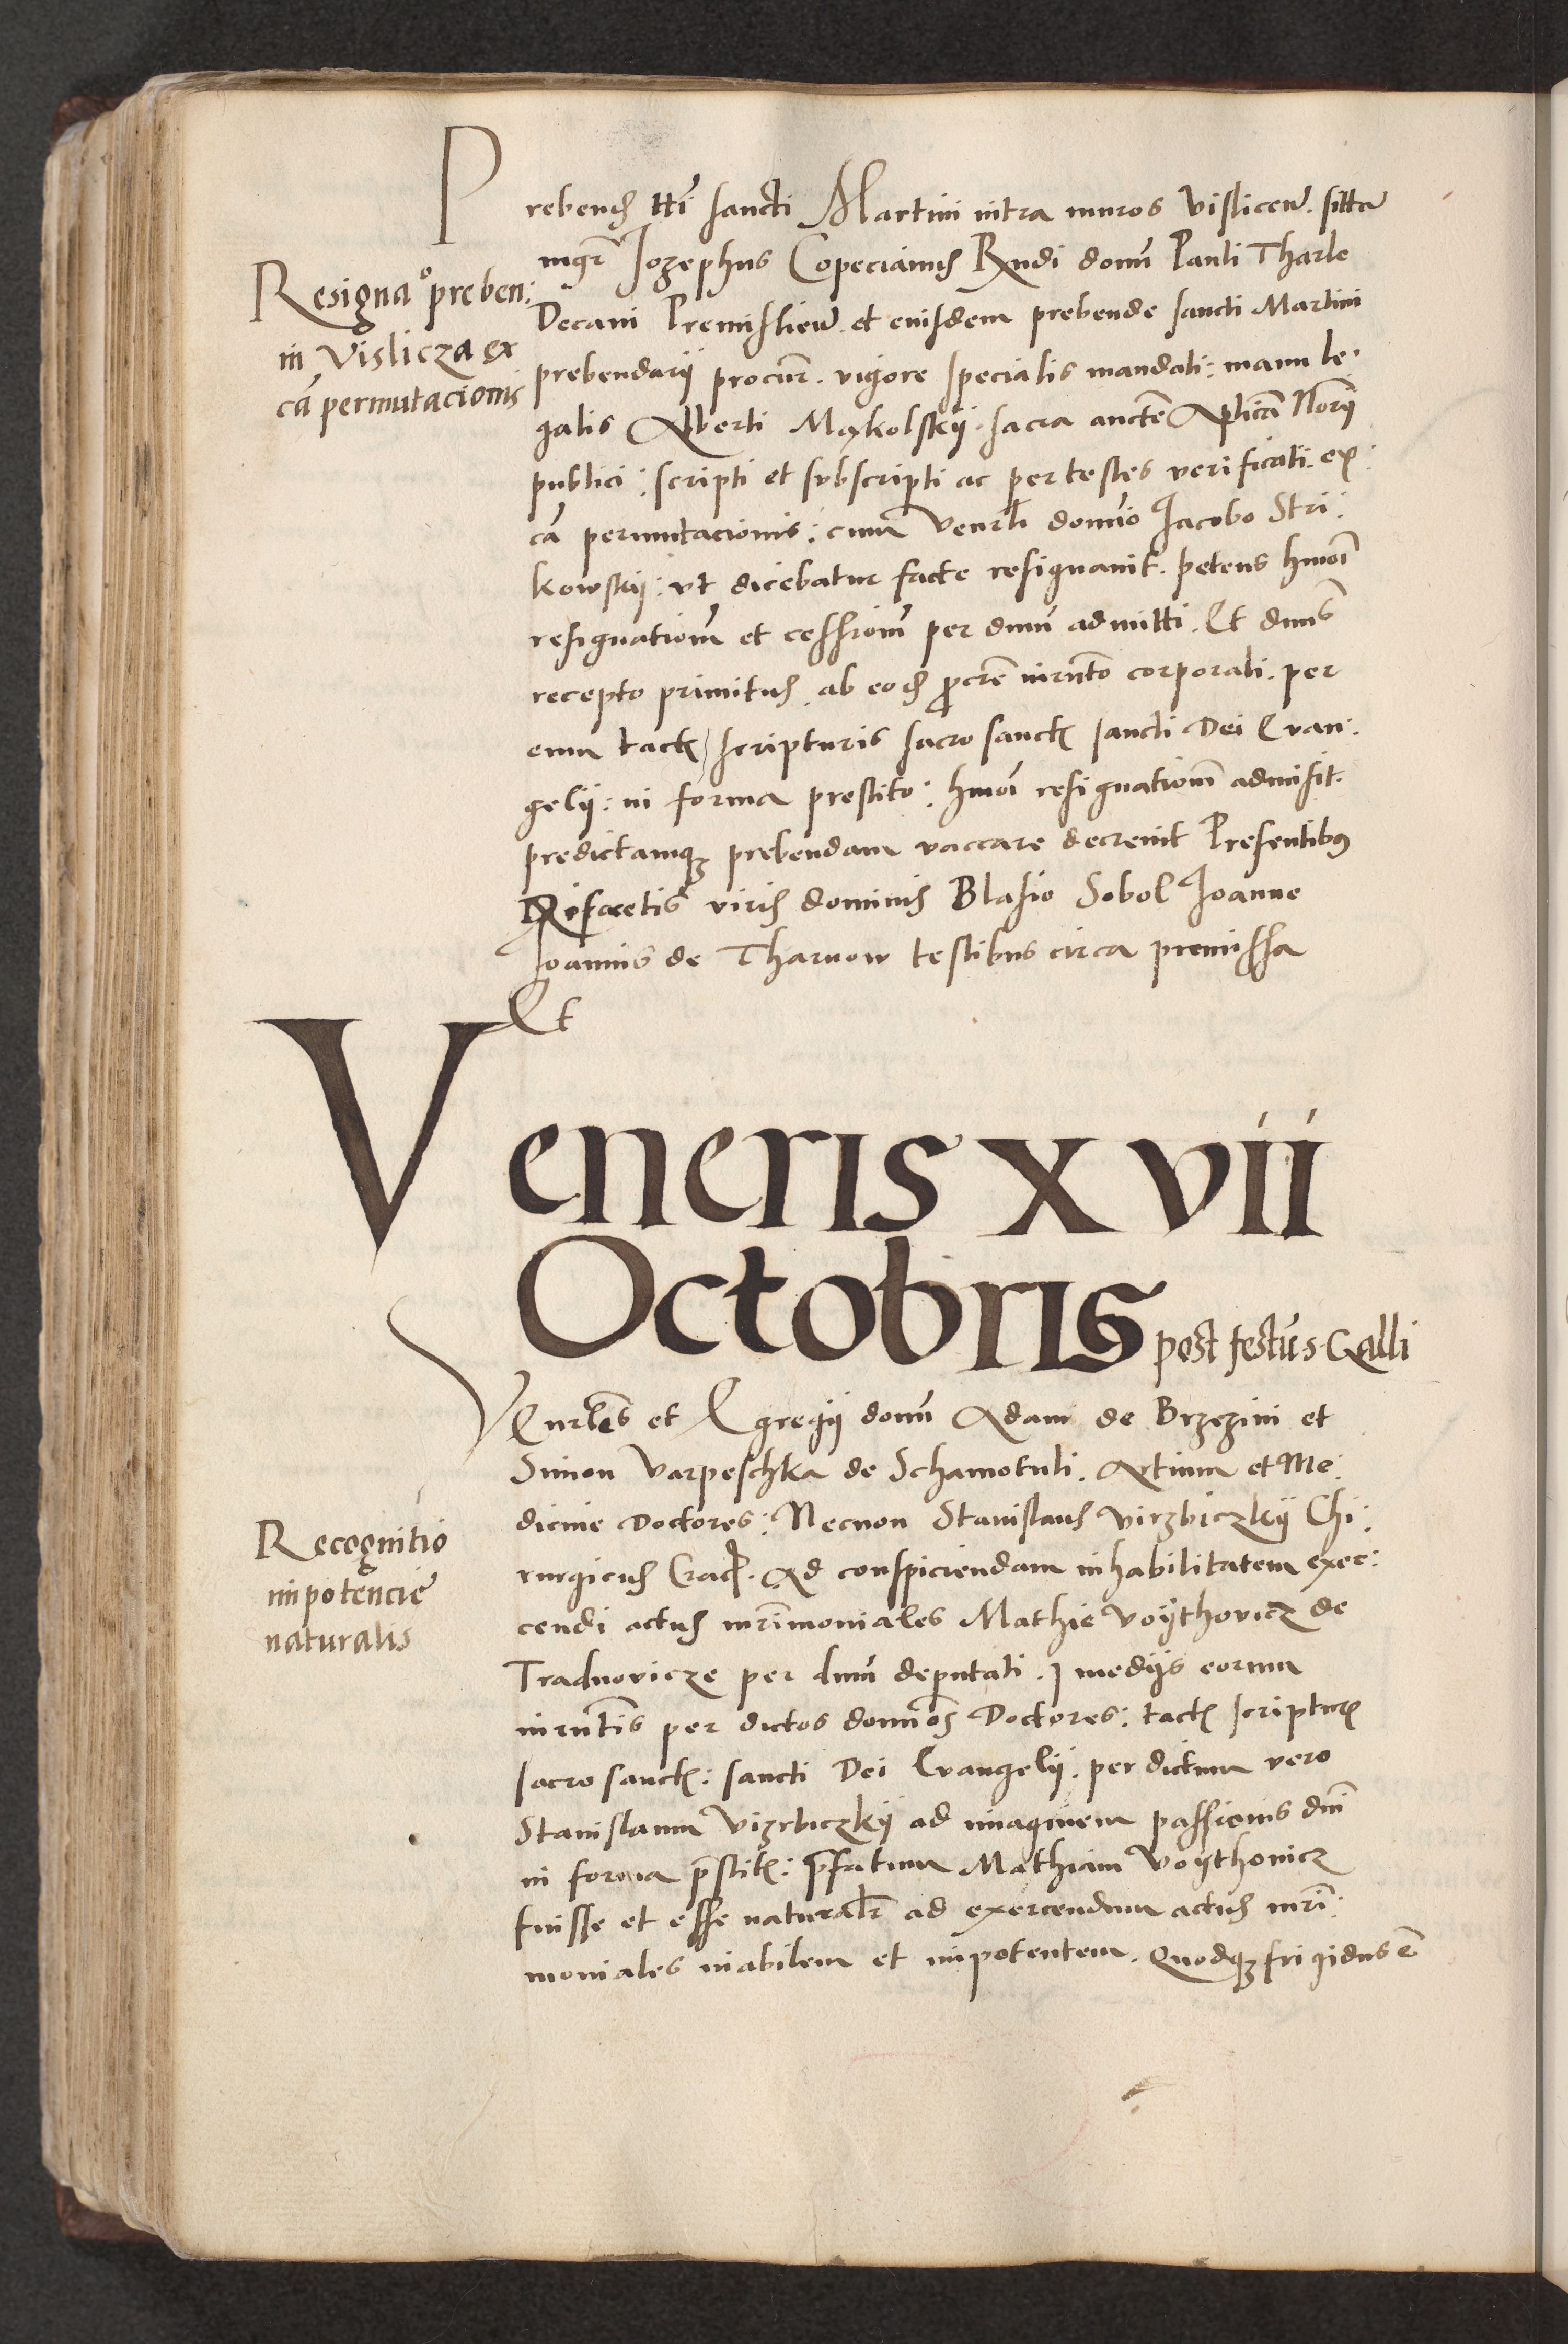 Prebendam tti sancti Martini intra muros Vislicen. sitta
mgr Jozephus Copecianus Rndi domi Pauli Tharlo
Resignao preben:
in Vislicza ex
ca permutacionis
Decani Premislien. et eiusdem prebende sancti Martini
prebendarij procur. vigore specialis mandati: manu le:
galis Alberti Mxkolskij. sacra aucte Aplica Norij
publici: scripti et subscripti ac per testes verificati. ex
ca permutacionis: cum Venrli domino Jacobo Stri:
kowskij: vt dicebatur facte resignauit. petens hmoi
resignationem et cessionem per dnum admitti. Et dnus
recepto primitus ab eodem procre iurnto corporali. per
eum tactis scripturis sacro sanctis sancti Dei Evan:
gelij: in forma prestito: hmoi resignationem admisit.
predictamque prebendam vaccare decreuit Presentibus
Discretis viris dominis Blasio Sobol Joanne
Joannis de Tharnow testibus circa premissa
Et
Veneris xvii
Octobris post festu s. Galli
Venrles et Egregij domi Adam de Brzezini et
Simon Varpeschka de Schamotuli. Artium et Me:
dicine Doctores: Necnon Stanislaus Virzbiczkij Chi:
Recognitio
impotencie
naturalis
rurgicus Crac. Ad conspiciendam inhabilitatem exer:
cendi actus mrimoniales Mathie Voijthovicz de
Traduovicze per dnum deputati. J medijs eorum
iurntis per dictos dominos Doctores: tactis scripturis
sacro sanctis: sancti Dei Evangelij. per dictum vero
Stanislaum Vizrbiczkij ad imaginem passionis dni
in forma prestitis: prefatum Mathiam Voijthouicz
fuisse et esse naturalr ad exercendum actus mri:
moniales inabilem et impotentem. Quodque frigidus e